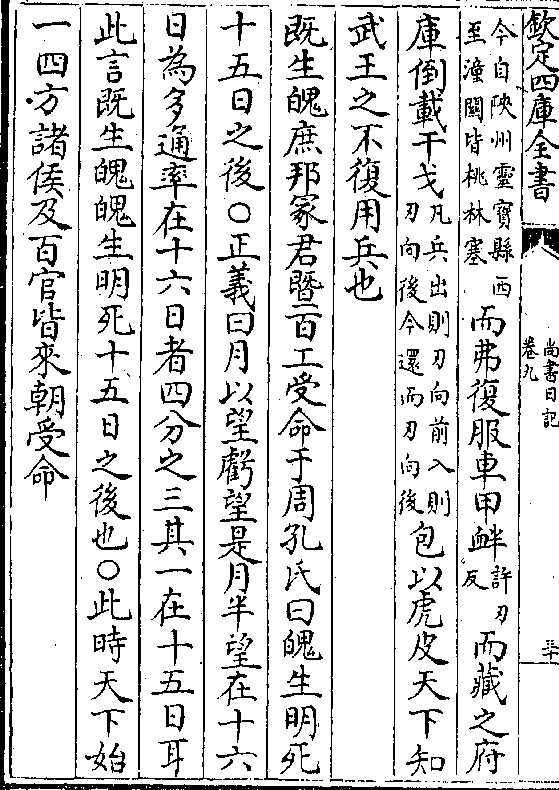 欽定四庫全書
尚書日記
卷九
三十
今自陝州靈寶縣西
至潼關皆桃林塞
而弗復服車甲衅
許刃
反
而藏之府
庫倒載干戈
凡兵出則刃向前入則
刃向後今還而刃向後
包以虎皮天下知
武王之不復用兵也
既生魄庶邦冢君曁百工受命于周孔氏曰魄生明死
十五日之後○正義曰月以望虧望是月半望在十六
日為多通率在十六日者四分之三其一在十五日耳
此言既生魄魄生明死十五日之後也○此時天下始
一四方諸侯及百官皆來朝受命